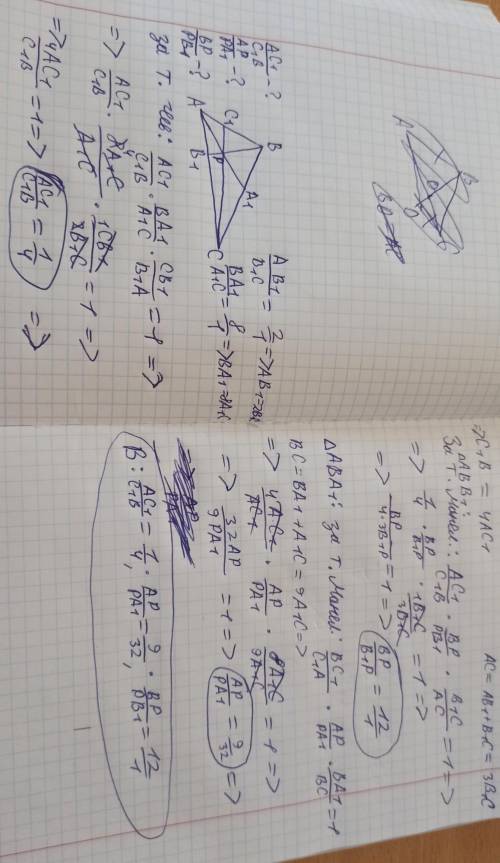 A
B
C
O
AC1/C1B - ?
AP/PA1 - ?
BP/PB1 - ?
B
C1
A1
P
A
B1
C
AB1/B1C = 2/1 => AB1=2B1C
BA1/A1C = 8/1 => BA1=8A1C
За т. Чев: AC1/C1B · BA1/A1C · CB1/B1A = 1 =>
=> AC1/C1B · 8A1C/A1C · 1CB1/2B1C = 1 =>
=> 4AC1/C1B = 1 => AC1/C1B = 1/4 =>
=> C1B = 4AC1
AC = AB1+B1C = 3B1C
△ABB1:
За т. Манел.: AC1/C1B · BP/PB1 · B1C/AC = 1 =>
=> 1/4 · BP/B1P · 1B1C/3B1C = 1 =>
=> BP/4·3B1P = 1 => BP/B1P = 12/1
△ABA1: за т. Манел: BC1/C1A · AP/PA1 · BA1/BC = 1
BC = BA1 + A1C = 9A1C =>
=> 4AC1/AC1 · AP/PA1 · 8A1C/9A1C = 1 =>
=> 32AP/9PA1 = 1 => AP/PA1 = 9/32 =>
В: AC1/C1B = 1/4, AP/PA1 = 9/32, BP/PB1 = 12/1